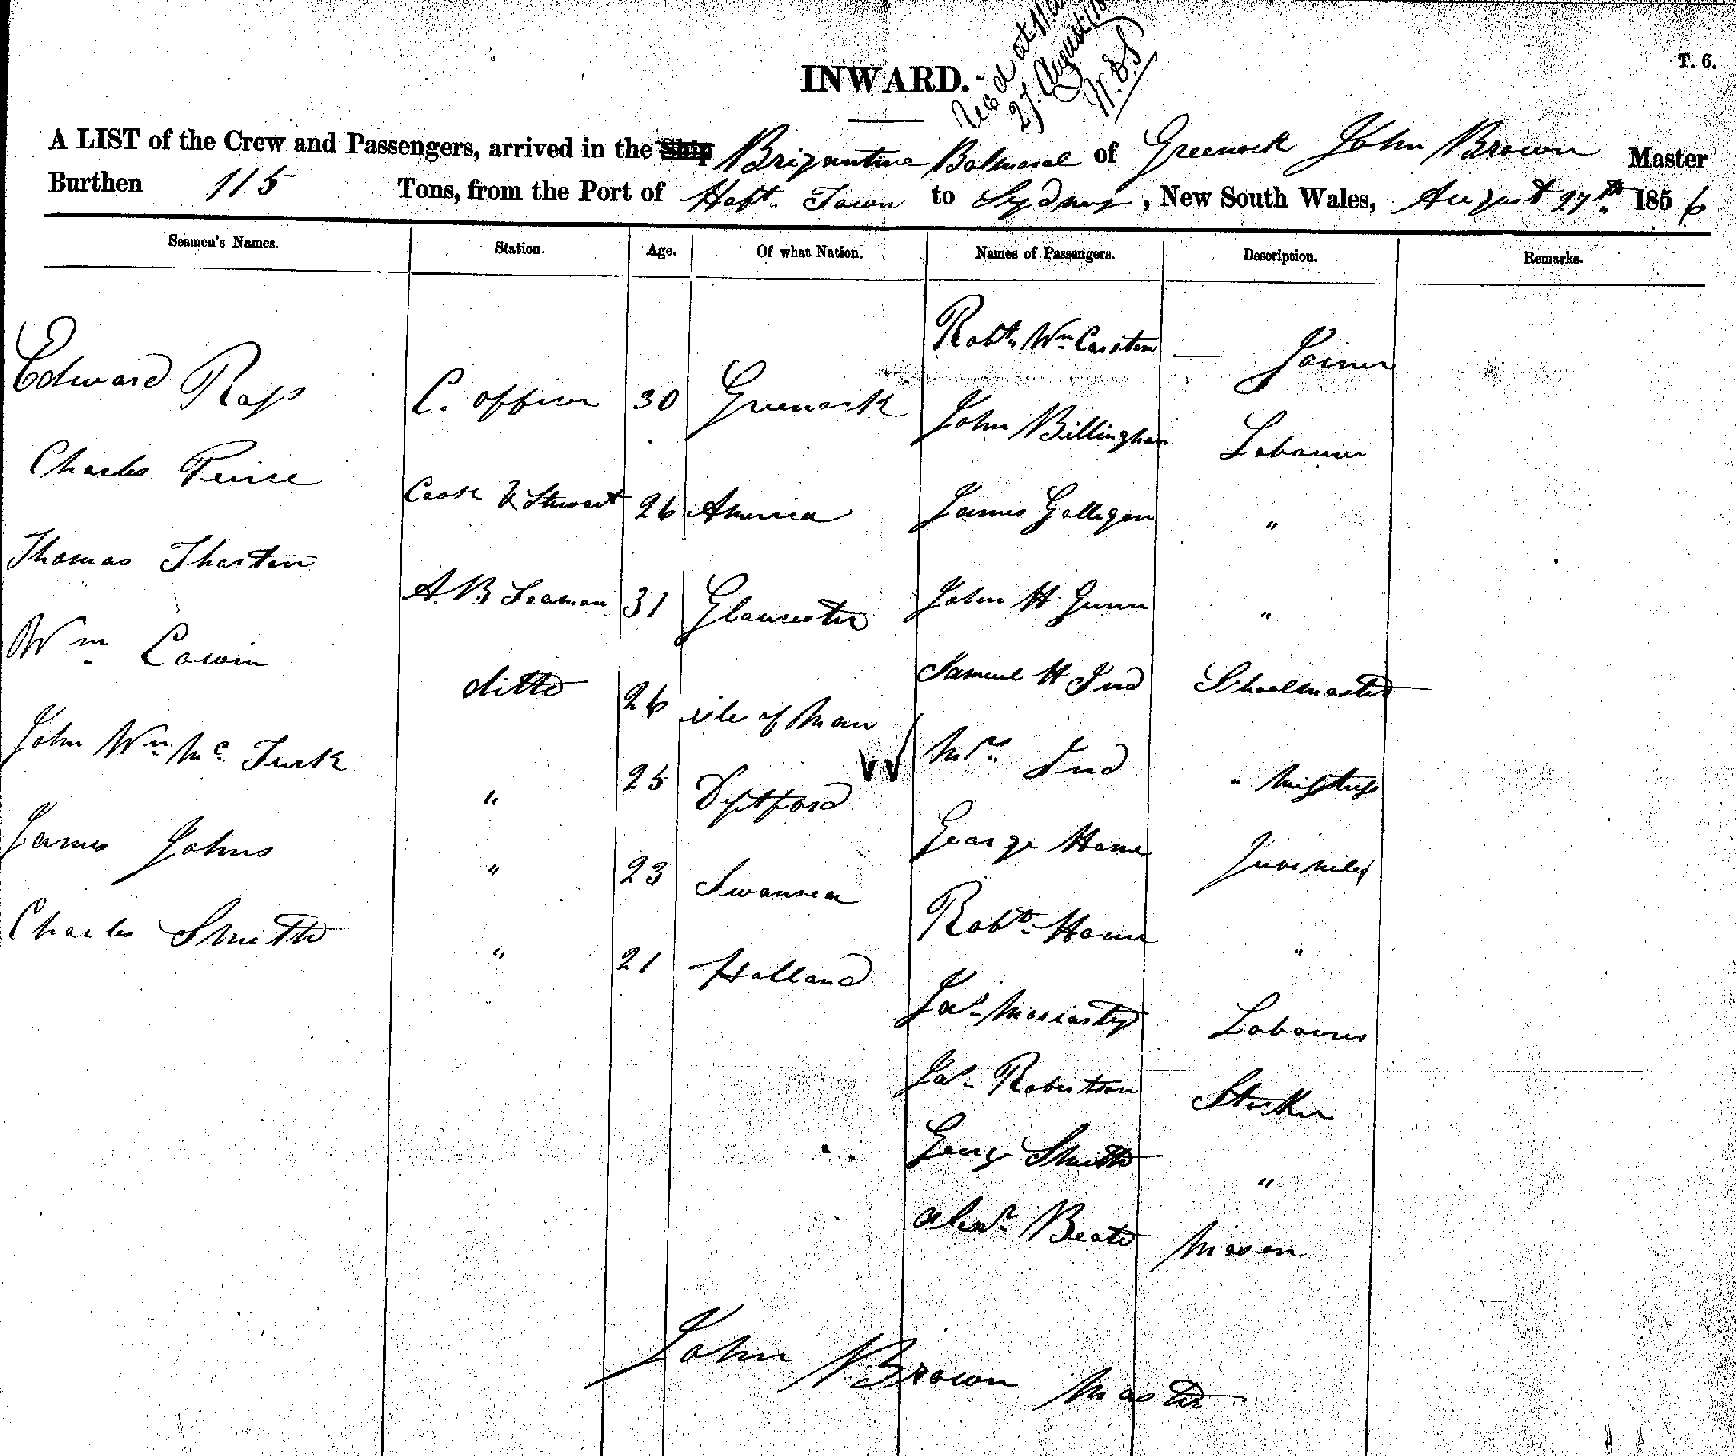 Rec'd at
27 August
T. 6.
INWARD.
A LIST of the Crew and Passengers, arrived in the Ship Brigantine Balmoral of Greenock John Brown Master
Burthen 115 Tons, from the Port of Hobt. Town to Sydney, New South Wales, August 27th 1856
Seamen's Names. Station. Age. Of what Nation. Names of Passengers. Description. Remarks.
Robt. Wm. Joiner
Edward Ross C. officer 30 Greenock John Billingham Labourer
Charles Peirce Cook & Steward 26 America James Gallegan "
Thomas Thurston A.B Seaman 31 Gloucester John H Gunn "
Wm. Cowin ditto 26 isle of Man Samuel H Ind Schoolmaster
John Wm. Mc Turk " 25 Deptford Mrs. Ind " Misstress
James Johns " 23 Swansea George Horne Juveniles
Charles Smith " 21 Holland Robt. Horne "
Jas. Moriarty Labourer
Jas. Robertson Stocker
George Smith "
Alexr. Beato Mason
John Brown Master